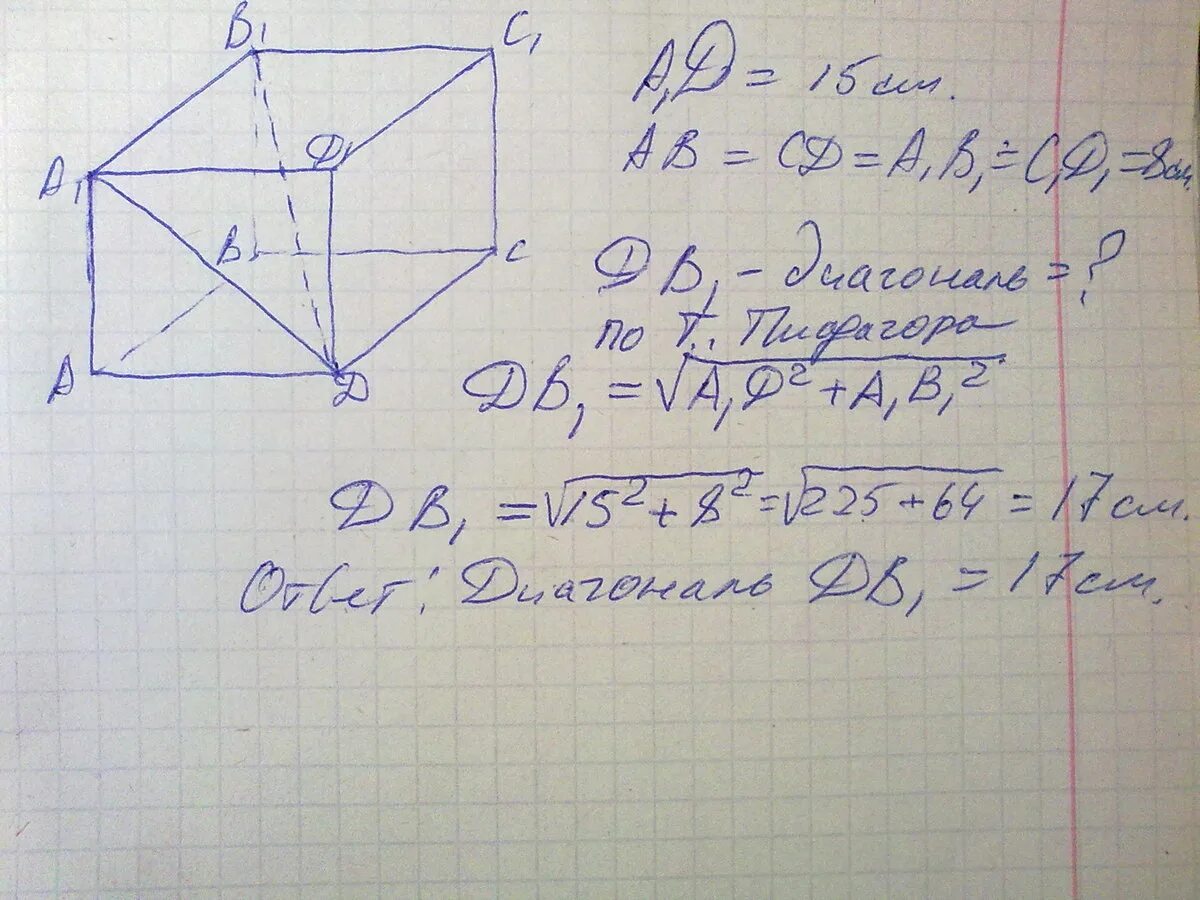 B₁
C₁
A₁
D₁
B
C
A
D
A₁D = 15 см.
AB = CD = A₁B₁ = C₁D₁ = 8 см.
DB₁ – диагональ = ?
по Т. Пифагора
DB₁ = √A₁D² + A₁B₁²
DB₁ = √15² + 8² = √225 + 64 = 17 см.
Ответ: Диагональ DB₁ = 17 см.